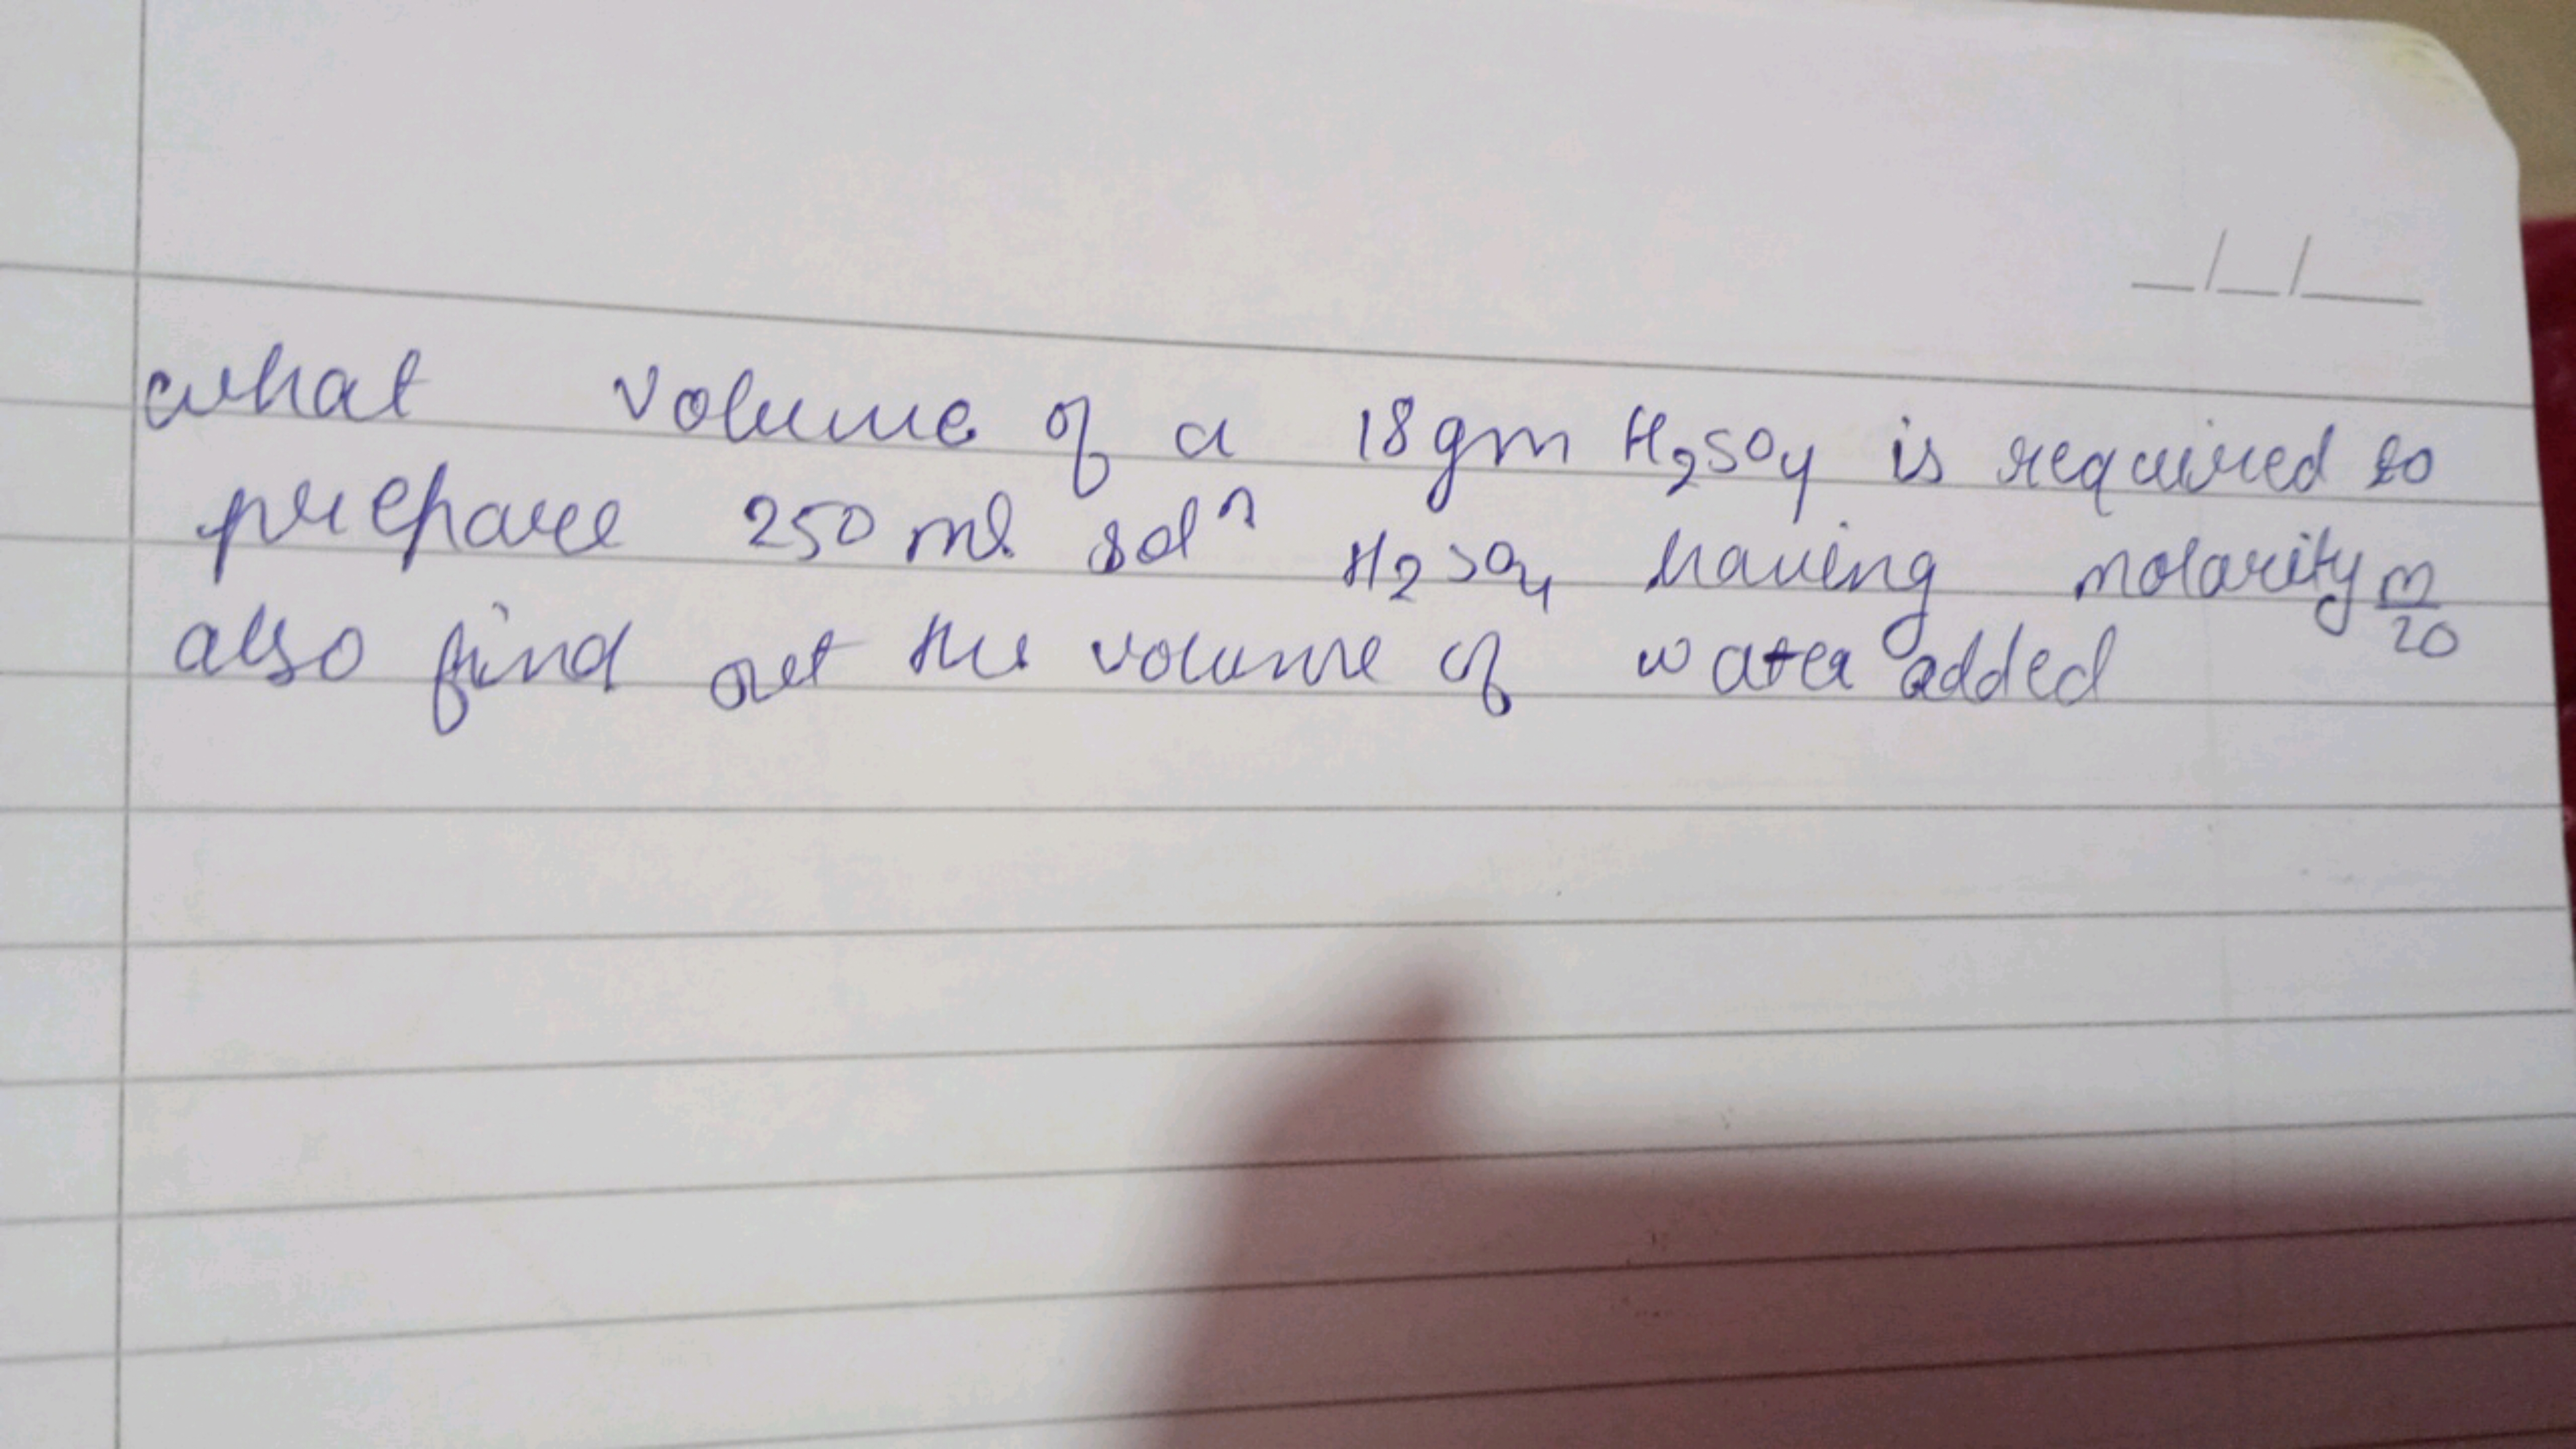 what volume of a 18gm H₂SO₄ is required to
prepare 250 ml solⁿ H₂SO₄ having molarity m/20
also find out the volume of water added